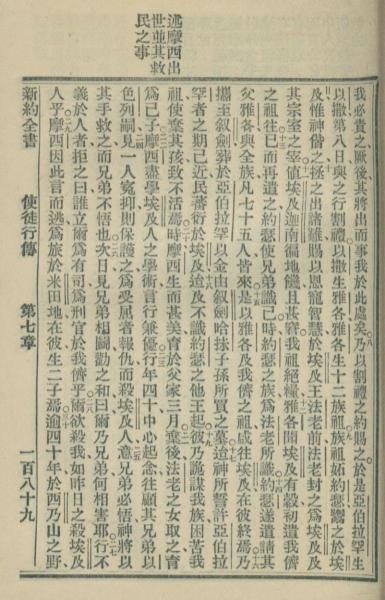 述摩西出
世並其救
民之事
我必責之、厥後其將出而事我於此處矣、○八乃以割禮之約賜之、於是亞伯拉罕生
以撒第八日與之行割禮、以撒生雅各、雅各生十二族祖、○九族祖妬約瑟、鬻之於埃
及惟神偕之、○十拯之出諸難賜以恩寵智慧於埃及王法老前、法老封之為埃及及
其宗室之宰、○十一值埃及迦南徧地饑且甚窘、我祖絕糧、○十二雅各聞埃及有穀、初遣我儕
之祖往、○十三已而再遣之約瑟使兄弟識己、時約瑟之族為法老所識、○十四約瑟遂請其
父雅各與全族凡七十五人皆來、○十五是以雅各及我儕之祖咸往埃及在彼終焉、○十六乃
攜至叙劍葬於亞伯拉罕以金由叙劍哈抹子孫所買之墓、○十七迨神所誓許亞伯拉
罕者之期已近民蕃衍於埃及、○十八迨及不識約瑟之他王起、○十九彼乃詭謀我族困苦我
祖使棄其孩致不活焉、○二十時摩西生而甚美育於父家三月、○二一棄後法老之女取之育
為己子、○二二摩西盡學埃及人之學術言行兼優、○二三行年四十中心起念往顧其兄弟以
色列嗣、○二四見一人寃抑則保護之、為受屈者報仇而殺埃及人、○二五意兄弟必悟神將以
其手救之而兄弟不悟也、○二六次日見兄弟相鬬勸之和曰爾乃兄弟何相害耶、○二七行不
義於人者拒之曰誰立爾為有司為刑官於我儕乎、○二八爾欲殺我如昨日之殺埃及
人乎、○二九摩西因此言而逃、為旅於米田地在彼生二子焉、○三十逾四十年於西乃山之野
新約全書　使徒行傳　第七章　一百八十九